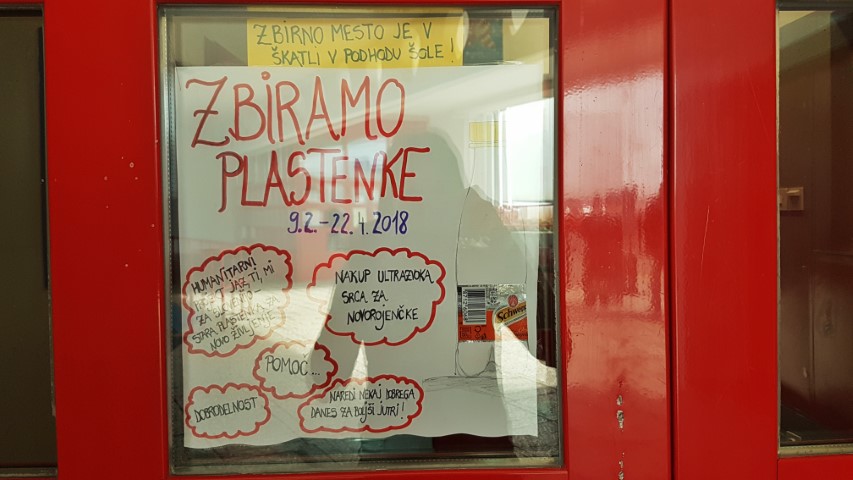 ZBIRNO MESTO JE V
ŠKATLI V PODHODU ŠOLE!
ZBIRAMO
PLASTENKE
9.2.-22.4.2018
HUMANITARNI
JAZ, TI, MI
ZA
STARA PLASTENKA ZA
NOVO ŽIVLJENJE
NAKUP ULTRAZVOKA
SRCA ZA
NOVOROJENČKE
POMOČ...
DOBRODELNOST
NAREDI NEKAJ DOBREGA
DANES ZA BOLJŠI JUTRI!
Schwe